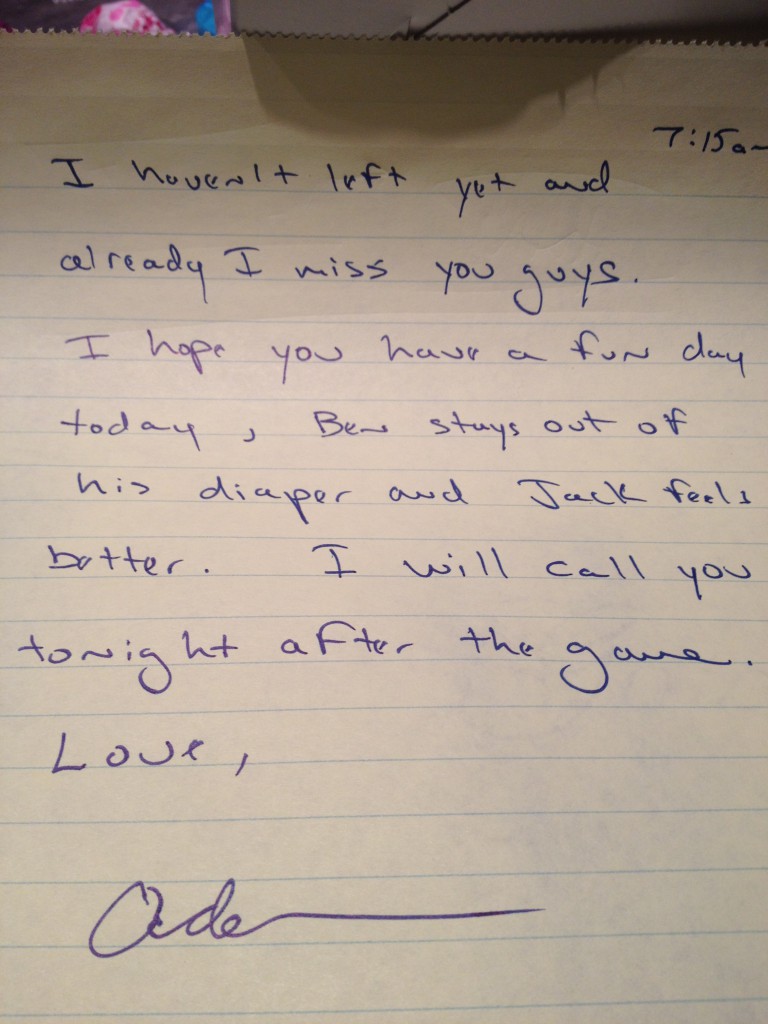 7:15am
I haven't left yet and
already I miss you guys.
I hope you have a fun day
today, Ben stays out of
his diaper and Jack feels
better. I will call you
tonight after the game.
Love,